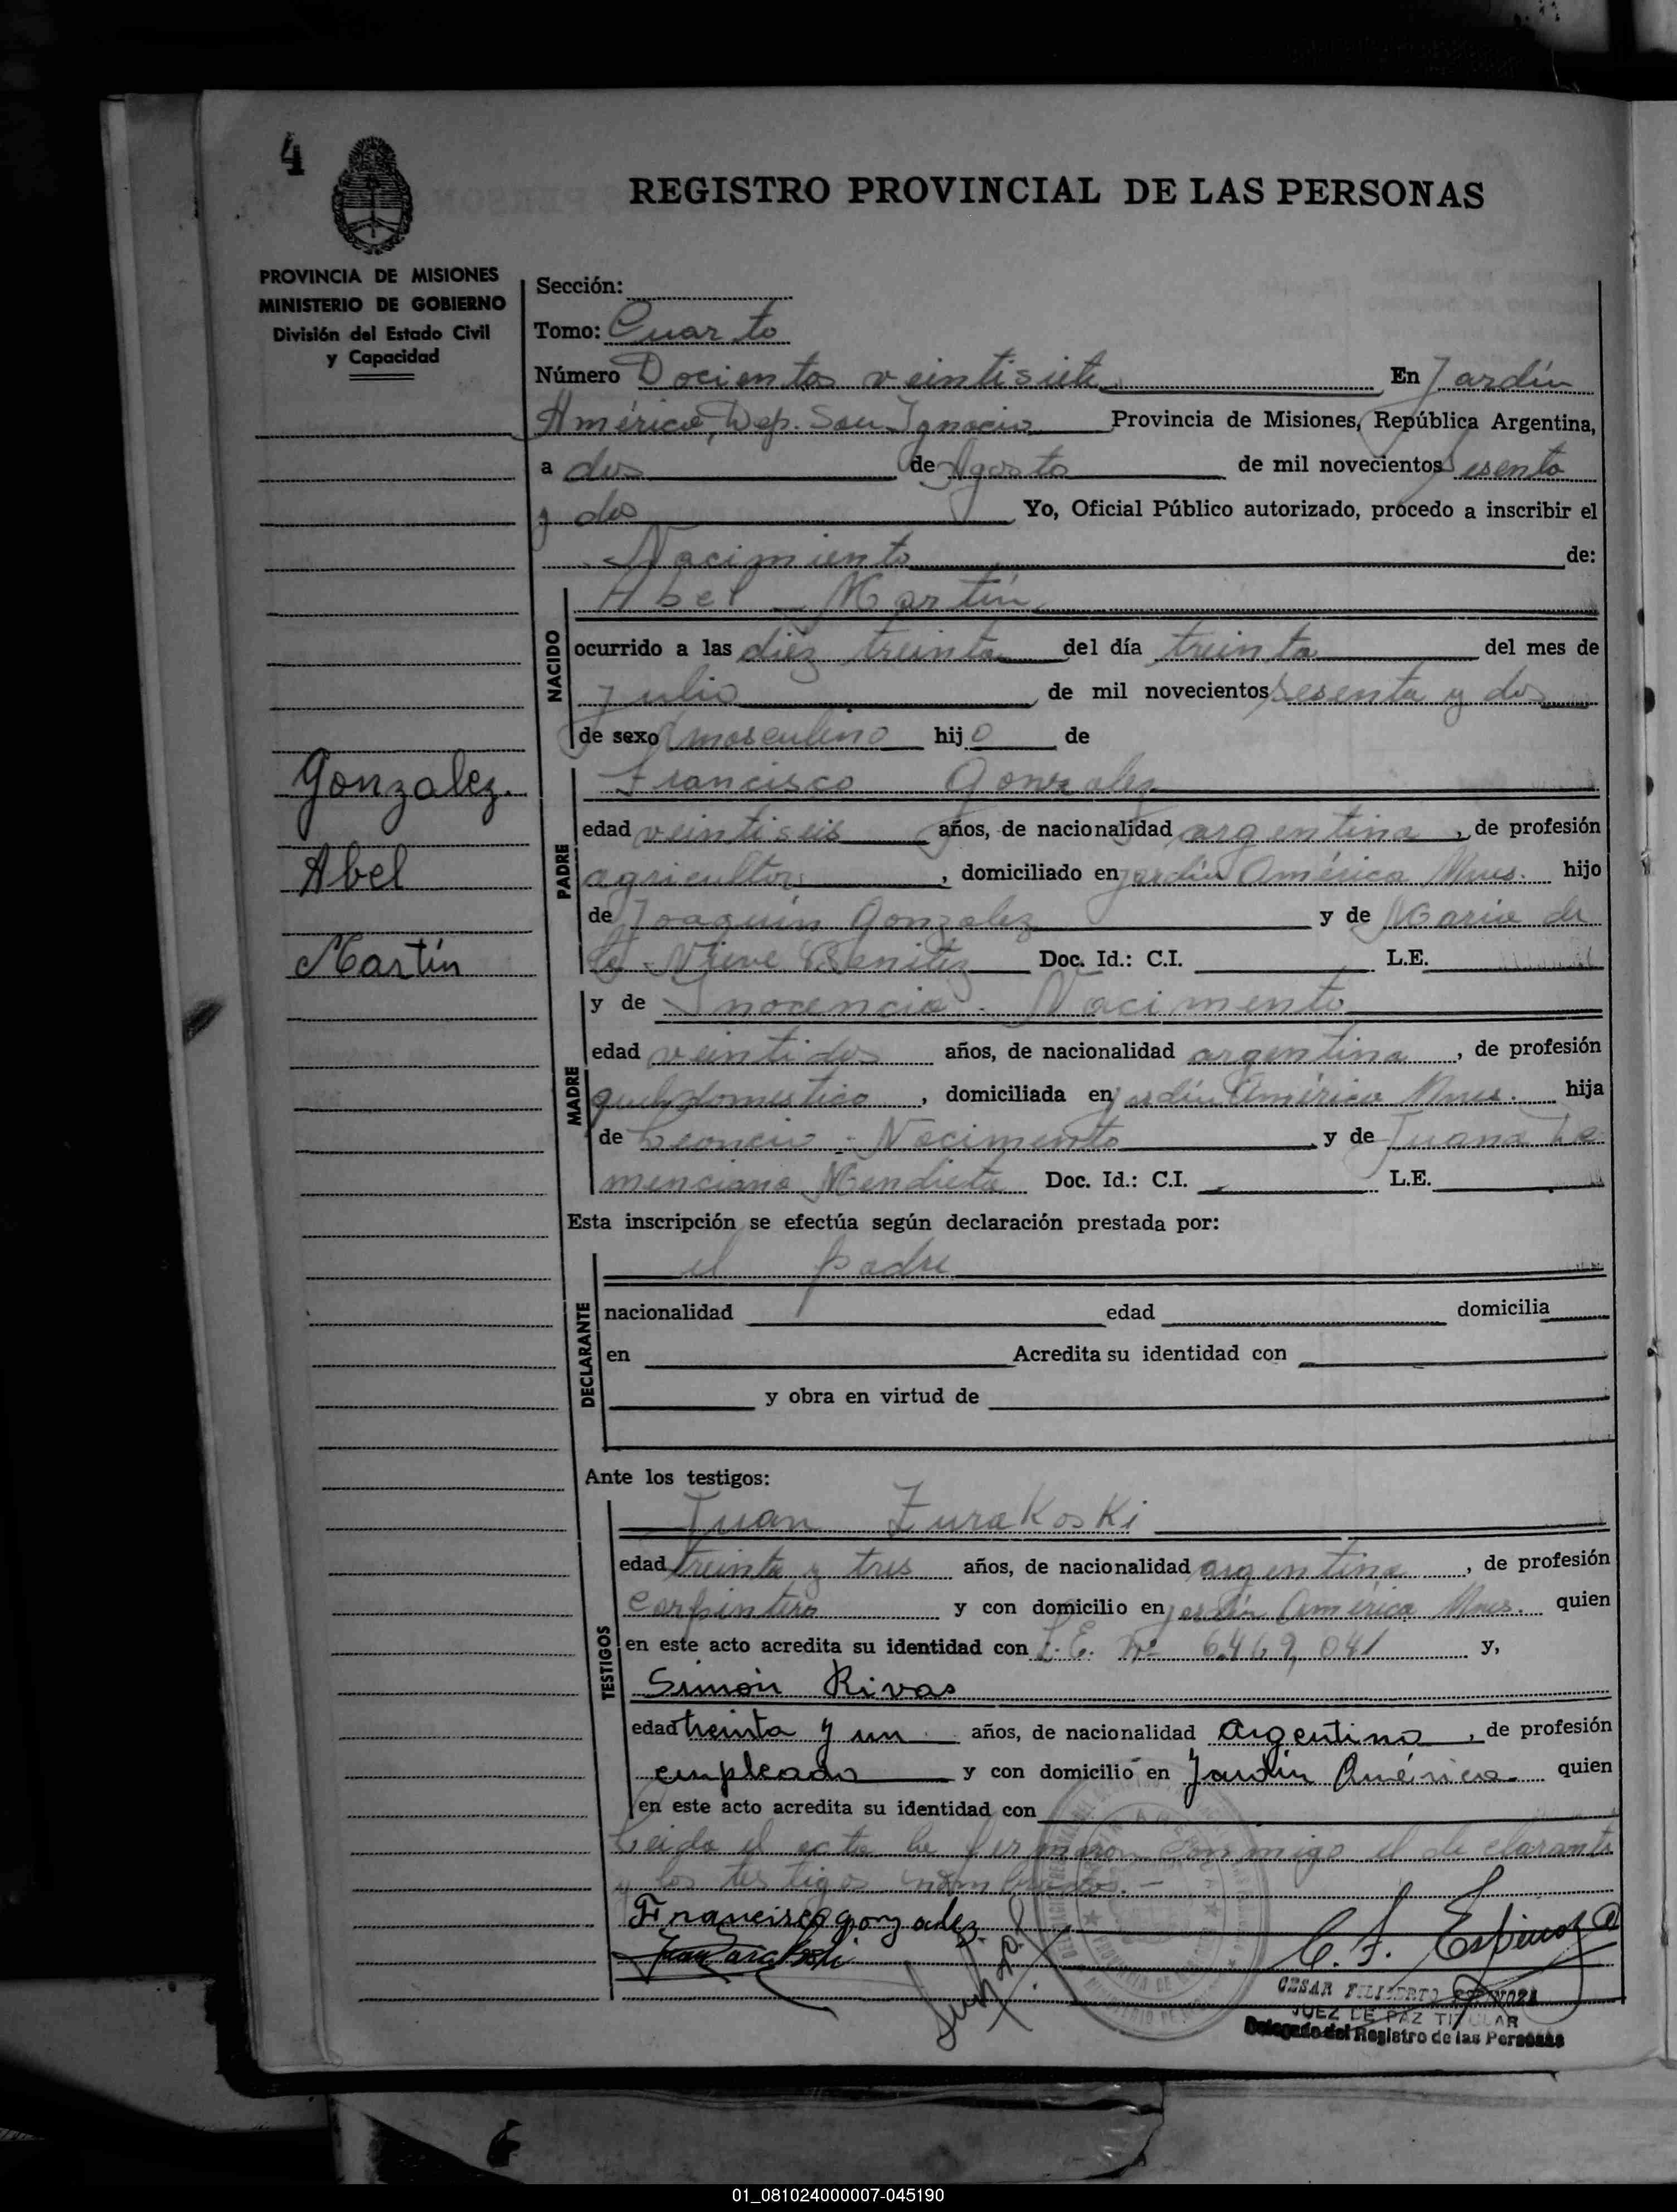 4
REGISTRO PROVINCIAL DE LAS PERSONAS
PROVINCIA DE MISIONES
MINISTERIO DE GOBIERNO
División del Estado Civil
y Capacidad
Sección:
Tomo: Cuarto
Número Docientos veintisiete En Jardín
América, Dep. San Ignacio Provincia de Misiones, República Argentina,
a dos de Agosto de mil novecientos Sesenta
y dos Yo, Oficial Público autorizado, procedo a inscribir el
Nacimiento de:
Abel - Martín
NACIDO
ocurrido a las diéz treinta del día treinta del mes de
Julio de mil novecientos sesenta y dos
de sexo masculino hijo de
Gonzalez.
Abel
Martín
PADRE
Francisco Gonzalez
edad veintiseis años, de nacionalidad argentina, de profesión
agricultor, domiciliado en jardín América Mnes. hijo
de Joaquín Gonzalez y de Maria de
la Nieve Benitez Doc. Id.: C.I. L.E.
MADRE
y de Inocencia - Nacimento
edad veintidos años, de nacionalidad argentina, de profesión
queh. domestico, domiciliada en jardín América Mnes. hija
de Leoncio - Nacimento y de Juana
Mendieta Doc. Id.: C.I. L.E.
Esta inscripción se efectúa según declaración prestada por:
el padre
DECLARANTE
nacionalidad edad domicilia
en Acredita su identidad con
y obra en virtud de
Ante los testigos:
TESTIGOS
Juan Zurakoski
edad treinta y tres años, de nacionalidad argentina, de profesión
carpintero y con domicilio en jardín América Mnes. quien
en este acto acredita su identidad con L.E. Nº 6.469,041 y,
Simón Rivas
edad treinta y un años, de nacionalidad Argentina, de profesión
empleado y con domicilio en Jardín América. quien
en este acto acredita su identidad con
Leida el acta la firmaron conmigo el declarante
y los testigos nombrados. -
Francisco gonzalez
C. F. Espinoza
CESAR FILIBERTO ESPINOZA
JUEZ DE PAZ TITULAR
Delegado del Registro de las Personas
01_081024000007-045190